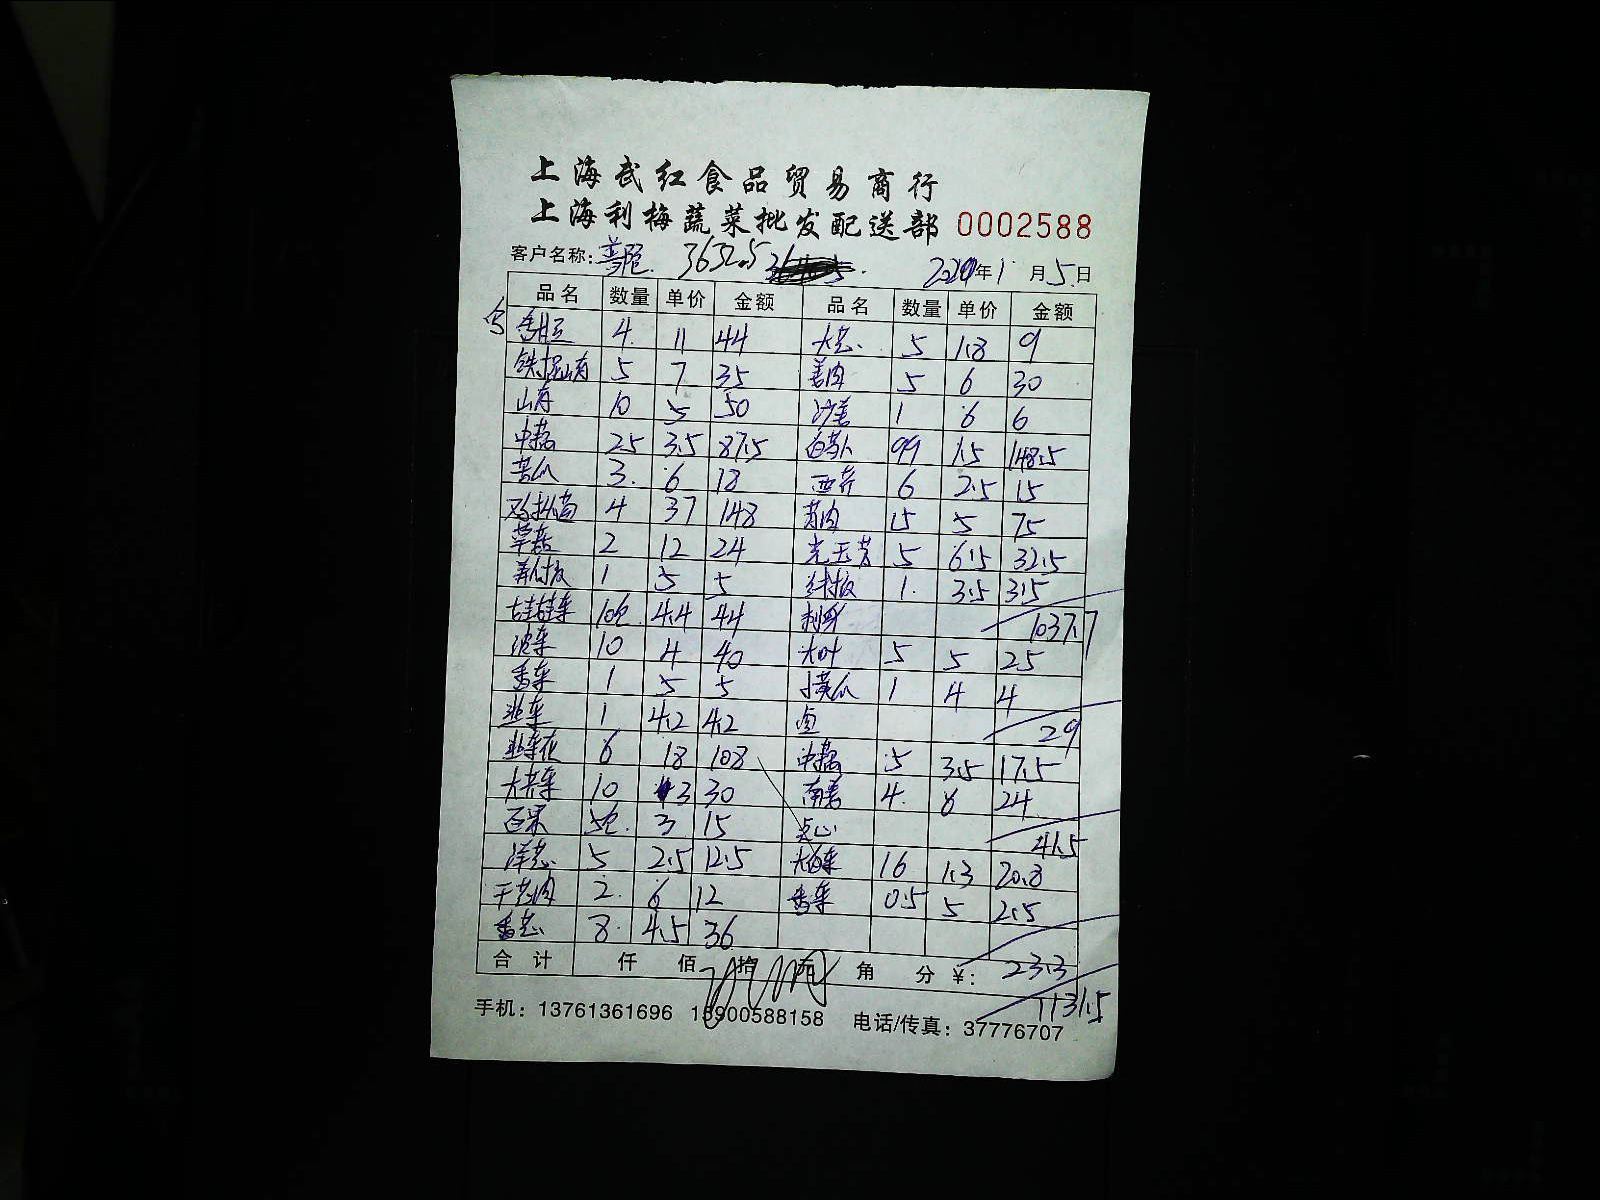 上海武红食品贸易商行
上海利梅蔬菜批发配送部 0002588
客户名称: 3632.5 年1月5日
品名 数量 单价 金额 品名 数量 单价 金额
4 11 44 大葱 5 1.8 9
铁棍山药 5 7 35 姜肉 5 6 30
山药 10 5 50 沙姜 1 6 6
中藕 25 3.5 87.5 白萝卜 99 1.5 148.5
苦瓜 3 6 18 西芹 6 2.5 15
鸡枞菌 4 37 148 15 5 75
草菇 2 12 24 5 6.5 32.5
1 5 5 1 3.5 3.5
娃娃菜 10包 4.4 44 刺身 1037.7
菠菜 10 4 40 大叶 5 5 25
香菜 1 5 5 小黄瓜 1 4 4
韭菜 1 4.2 4.2 卤 29
韭菜花 6 18 108 中藕 5 3.5 17.5
10 3 30 南姜 4 6 24
百果 5包 3 15 点心 41.5
洋葱 5 2.5 12.5 大白菜 16 1.3 20.8
2 6 12 香菜 0.5 5 2.5
香葱 8 4.5 36
合计 仟 佰 拾 元 角 分 ¥: 23.3
1131.5
手机: 13761361696 18900588158 电话/传真: 37776707